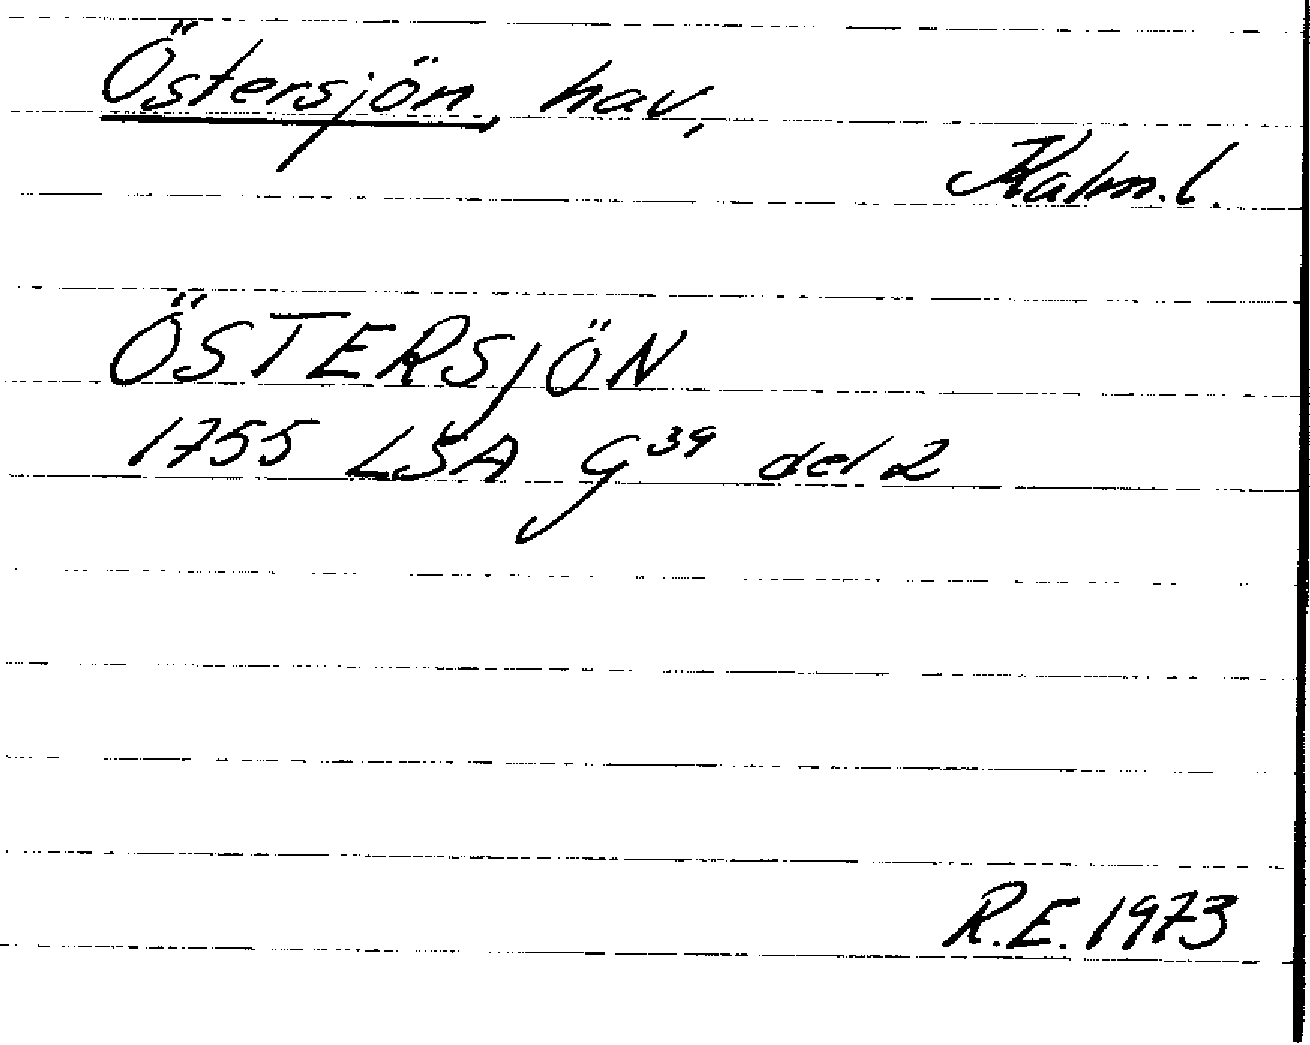 Östersjön, hav,
Kalm.l.
ÖSTERSJÖN
1755 LSA G³⁹ del 2
R.E. 1973